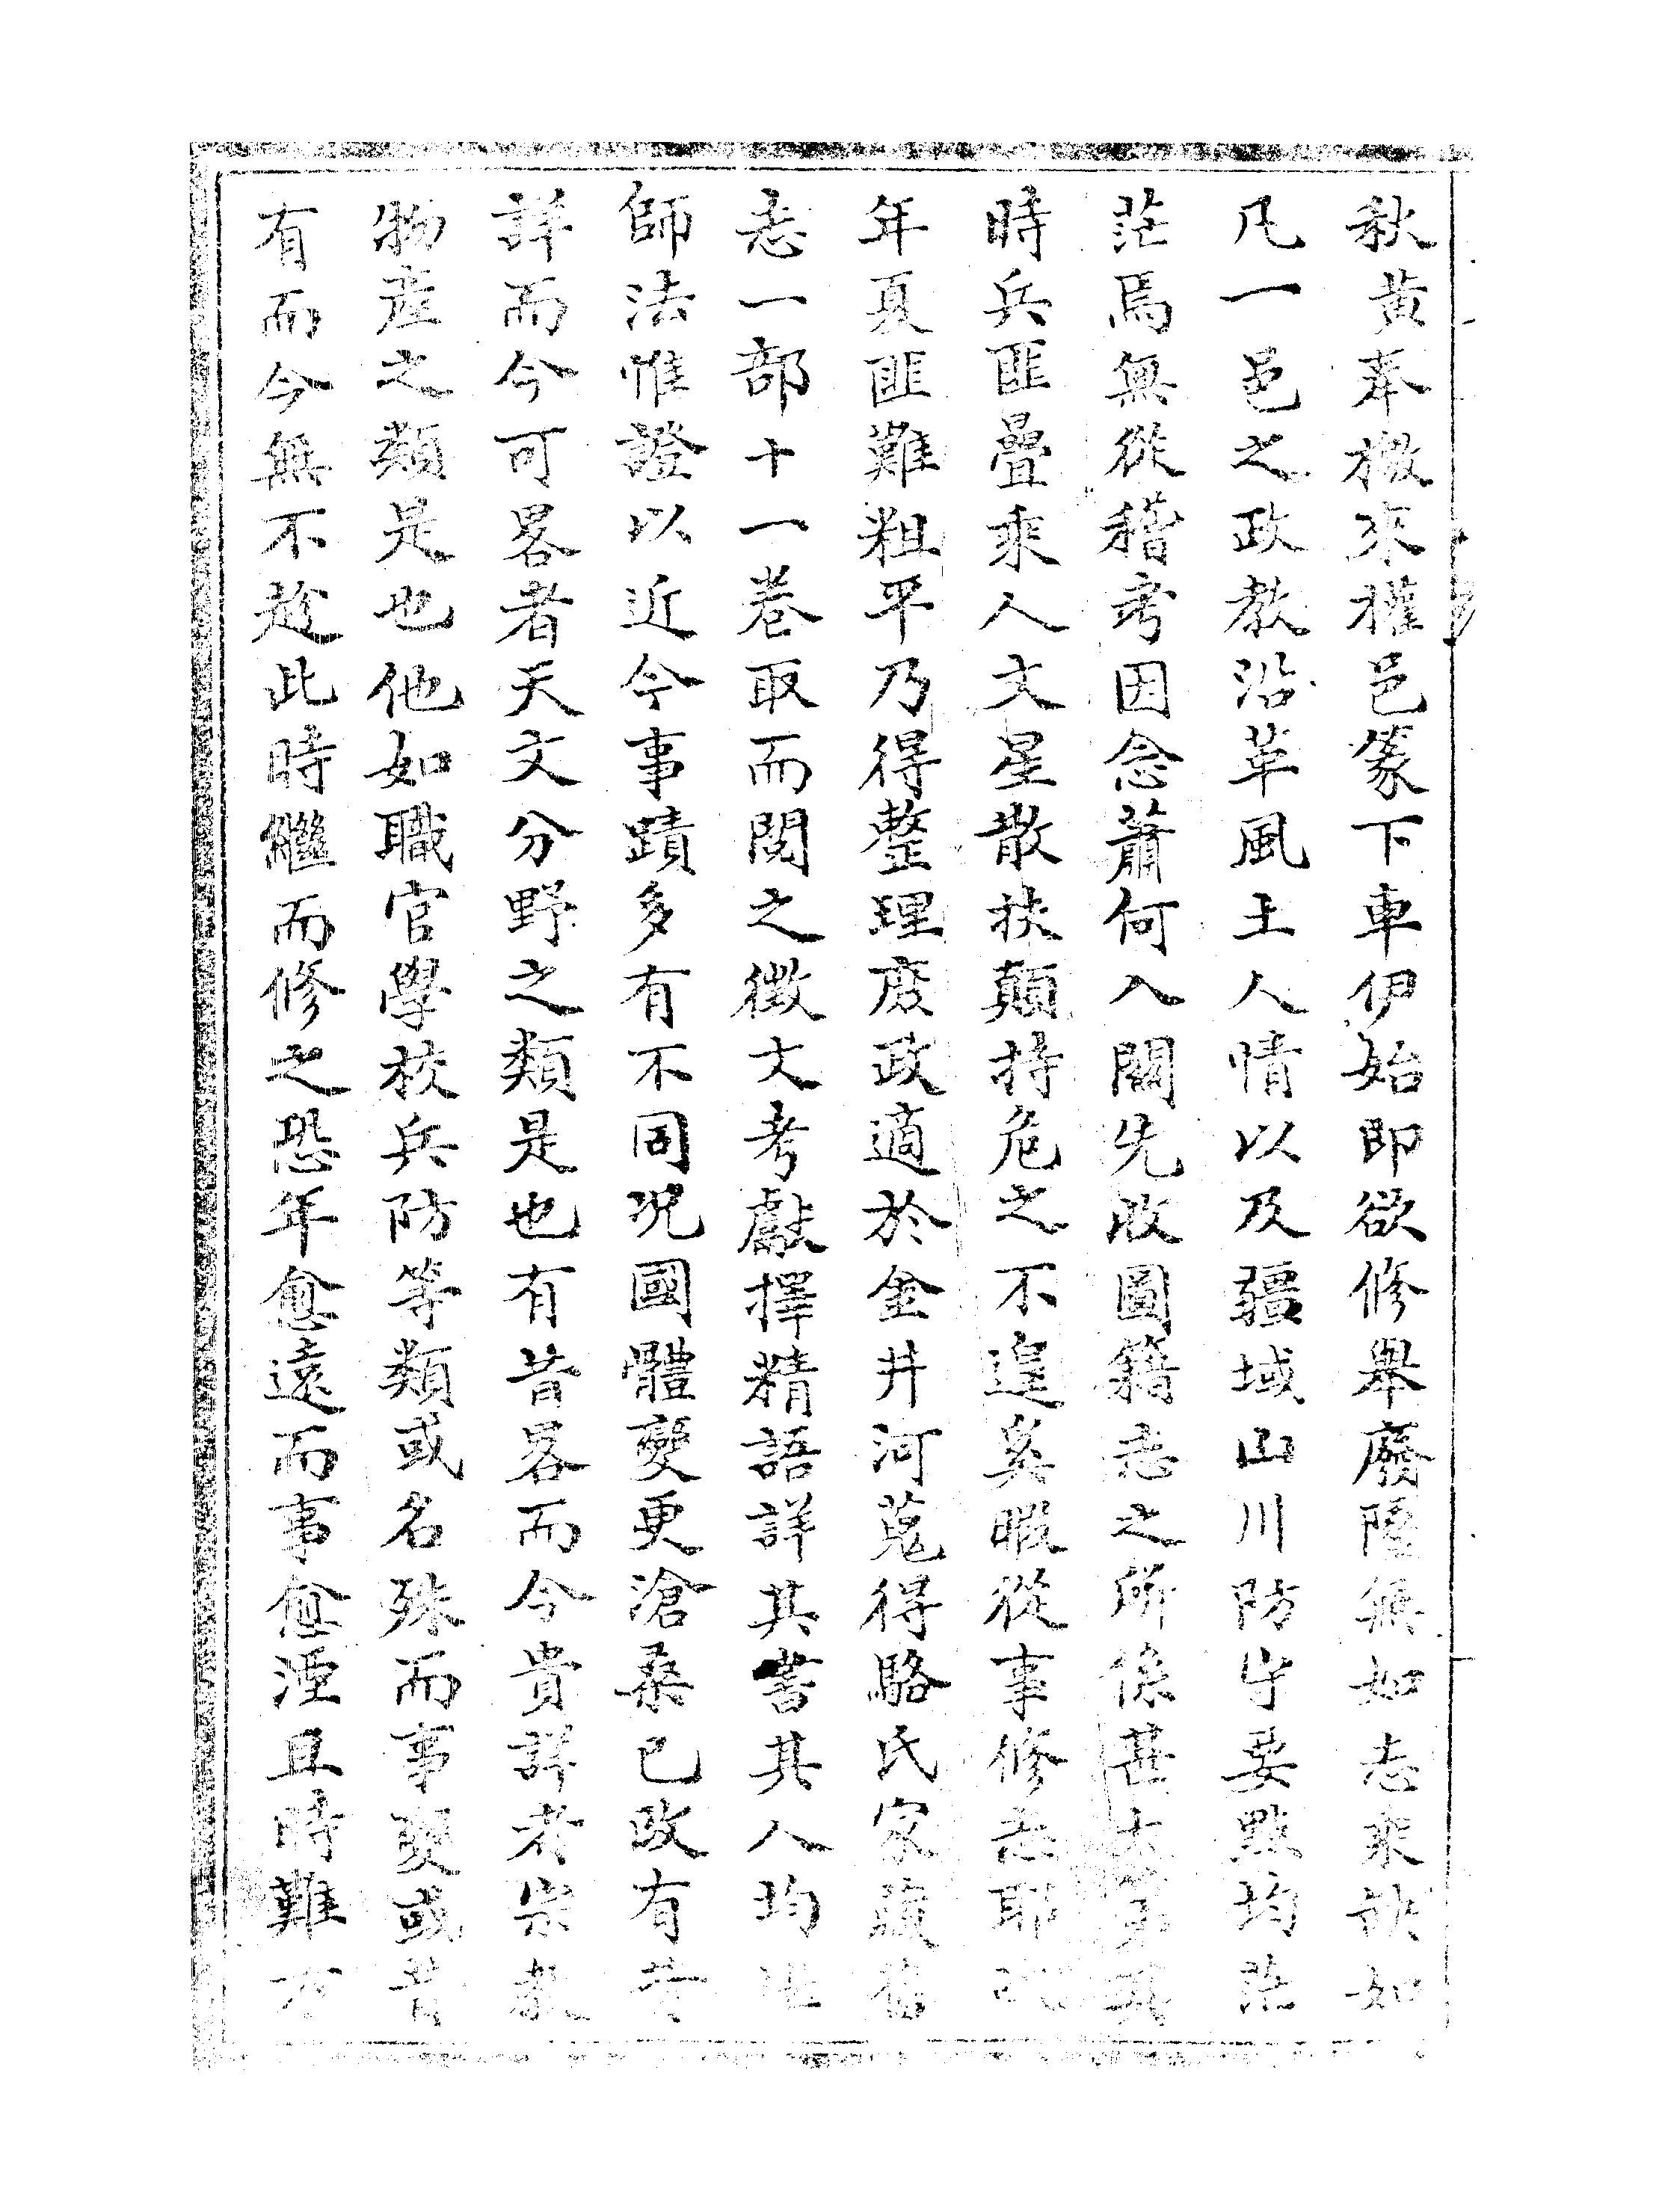 秋黃奉檄來權邑篆下車伊始即欲修舉廢墜無如志乘缺如
凡一邑之政教沿革風土人情以及疆域山川防守要點均茫
茫焉無從稽考因念蕭何入關先收圖籍志之所係甚大
時兵匪疊乘人文星散扶顛持危之不遑奚暇從事修志耶
年夏匪難粗平乃得整理庶政適於金井河蒐得駱氏家藏舊
志一部十一卷取而閱之徵文考獻擇精語詳其書其人均
師法惟證以近今事蹟多有不同況國體變更滄桑已改有昔
詳而今可畧者天文分野之類是也有昔畧而今貴詳者宗教
物產之類是也他如職官學校兵防等類或名殊而事變或昔
有而今無不趁此時繼而修之恐年愈遠而事愈湮且時難